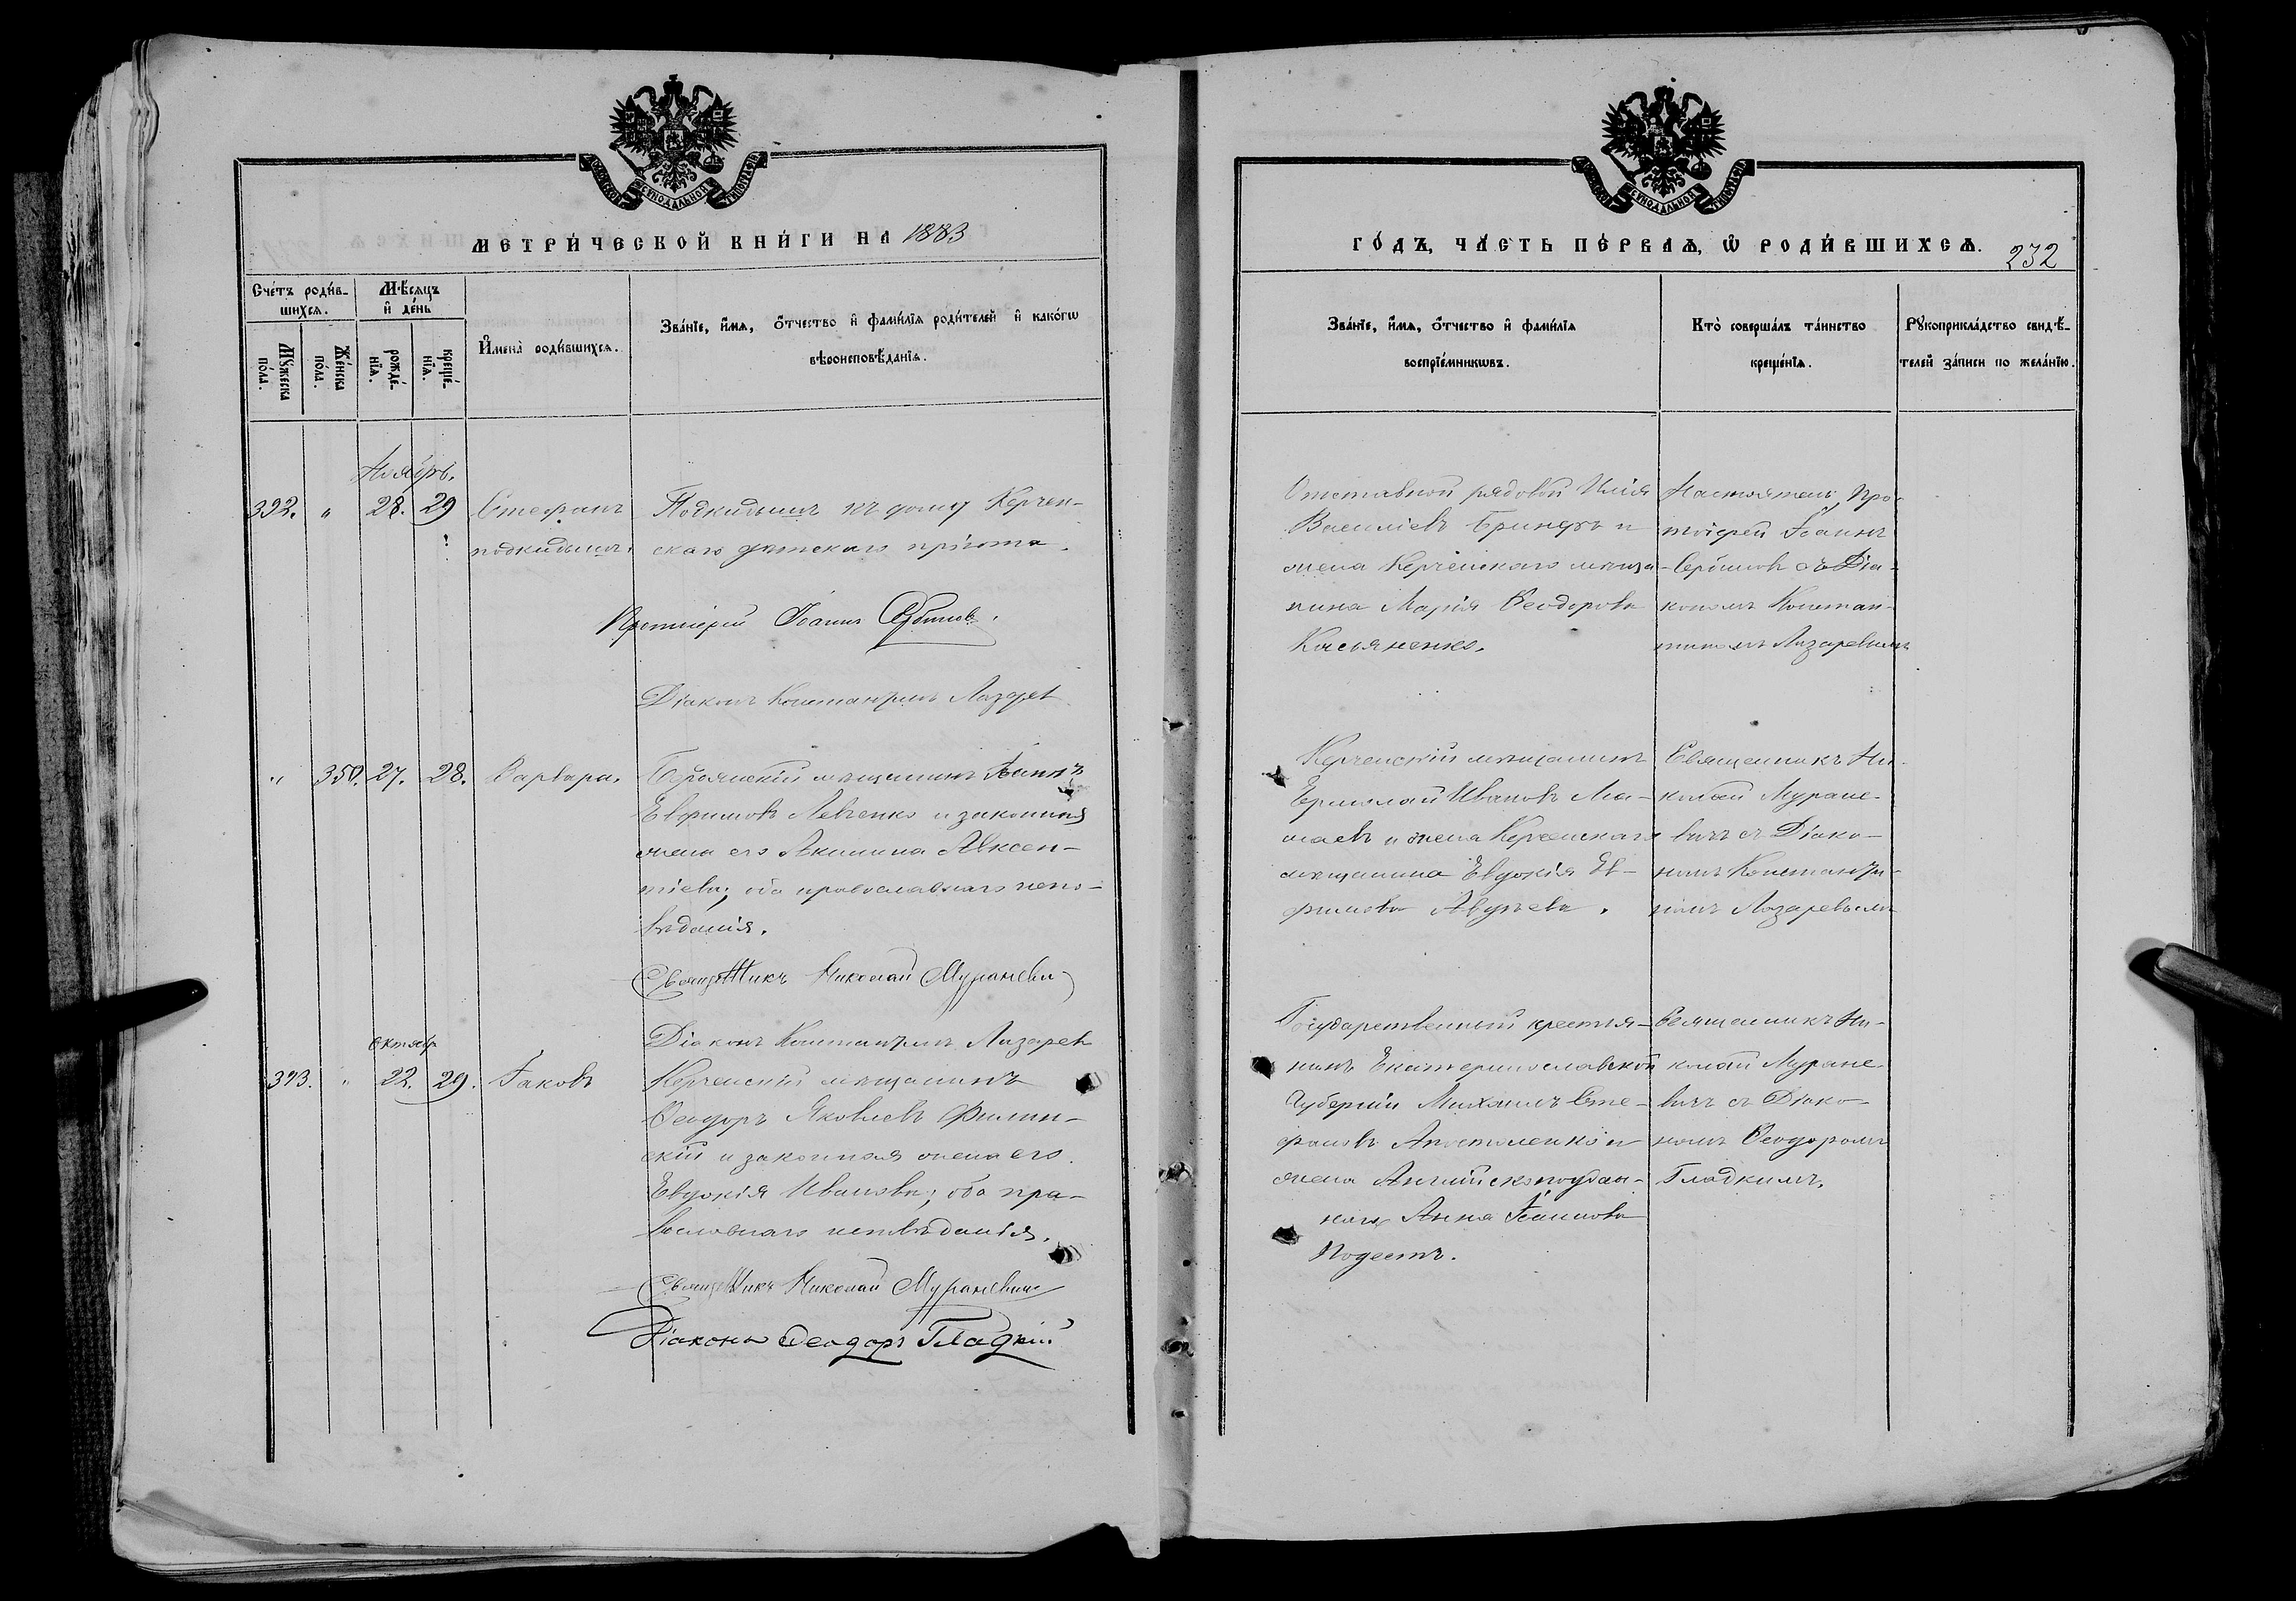 МЕТРИ́ЧЕСКОЙ КНИ́ГИ НА 1883
Сче́тъ роди́в-
шихсѧ.
Мѣ́сѧцъ
и҆ де́нь
Мꙋ́жеска
по́ла.
Же́нска
по́ла.
рожде́-
нїѧ.
креще́-
нїѧ.
И҆мена̀ роди́вшихсѧ.
Зва́нїе, и҆́мѧ, ѻ҆́тчество и҆ фами́лїѧ роди́телей и҆ како́гѡ
вѣроисповѣ́данїѧ.
Ноябрь.
392. " 28. 29 Стефанъ
подкидышъ.
Подкидышъ къ дому Керчен-
скаго детскаго пріюта.
Протоіерей Іоаннъ Сербиновъ.
Діаконъ Константинъ Лазарев
" 350. 27. 28. Варвара.
Бердянскій мѣщанинъ Іоаннъ
Евфимовъ Левченко и законная
жена его Акилина Авксен-
тіева; оба православнаго испо-
вѣданія.
Священникъ Николай Мураневич
Діаконъ Константинъ Лазарев
Октябр
393. " 22. 29. Іаковъ
Керченскій мѣщанинъ
Ѳеодоръ Яковлевъ Филин-
скій и законная жена его
Евдокія Иванова; оба пра-
вославнаго исповѣданія.
Священникъ Николай Мураневич
Діаконъ Ѳеодоръ Гладкій
ГО́ДЪ, ЧА́СТЬ ПЕ́РВАѦ, Ѽ РОДИ́ВШИХСѦ.
232
Зва́нїе, и҆́мѧ, ѻ҆́тчество и҆ фами́лїѧ
воспрїе́мникѡвъ.
Кто̀ соверша́лъ та́инство
креще́нїѧ.
Рꙋкоприкла́дство свидѣ́-
телей за́писи по жела́нїю.
Отставной рядовой Илія
Василіевъ и
жена Керченскаго мѣща-
нина Марія Ѳеодорова
Касьяненко.
Настоятель, Про-
тоіерей Іоаннъ
Сербиновъ съ Діа-
кономъ Констан-
тиномъ Лазаревымъ
Керченскій мѣщанинъ
Ермолай Ивановъ Ма-
маевъ и жена Керченскаго
мѣщанина Евдокія Ев-
фимова Авдѣева.
Священникъ Ни-
колай Муране-
вичъ съ Діако-
номъ Константи-
номъ Лазаревымъ
Государственный крестья-
нинъ Екатеринославской
Губерніи Михаилъ Сте-
фановъ Апостоленко и
жена Англійскоподдан-
наго Анна Іоаннова
Подестъ.
Священникъ Ни-
колай Муране-
вичъ съ Діако-
номъ Ѳеодоромъ
Гладкимъ.